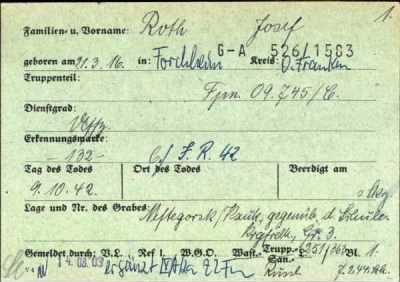 1.
Familien- u. Vorname: Roth Josef
G-A 526/1503
geboren am 21.3.16. in: Forchheim Kreis: O. Franken
Truppenteil: Fpn. 09745/C.
Dienstgrad: Uffz.
Erkennungsmarke: -132- 6./ J.R. 42
Tag des Todes Ort des Todes Beerdigt am
9.10.42.
Lage und Nr. des Grabes: Neftegorsk/Kauk., gegenüb. d. Schule
Gr. 3.
Gemeldet durch: V.L. Ref I. W.G.O. Wast- Trupp- San- 625/363 Bl. 1.
14.08.03 ergänzt